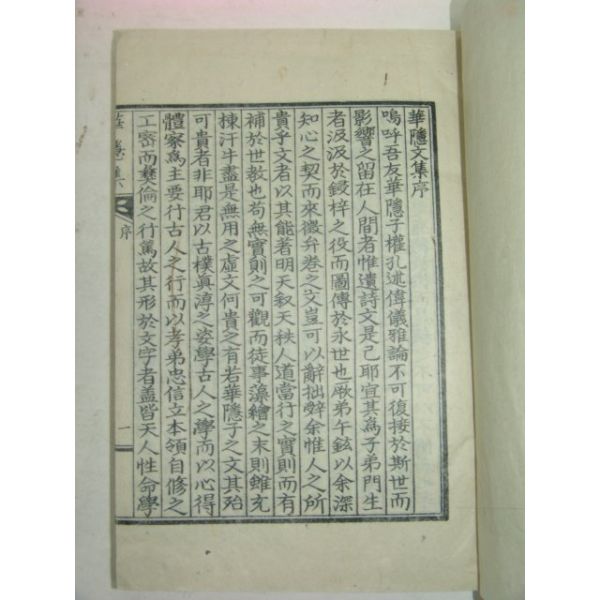 華隱文集序
嗚呼吾友華隱子權孔述偉儀雅論不可復接於斯世而
影響之留在人間者惟遺詩文是已耶宜其爲子弟門生
者汲汲於鋟梓之役而圖傳於永世也厥弟午鉉以余深
知心之契而來徵弁卷之文豈可以辭拙辤余惟人之所
貴乎文者以其能著明天叙天秩人道當行之實則而有
補於世敎也苟無實則之可觀而徒事藻繪之末則雖充
棟汗牛盡是無用之虛文何貴之有若華隱子之文其殆
可貴者非耶君以古樸眞淳之姿學古人之學而以心得
體察爲主要行古人之行而以孝弟忠信立本領自修之
工密而彝倫之行篤故其形於文字者盖皆天人性命學
序
一